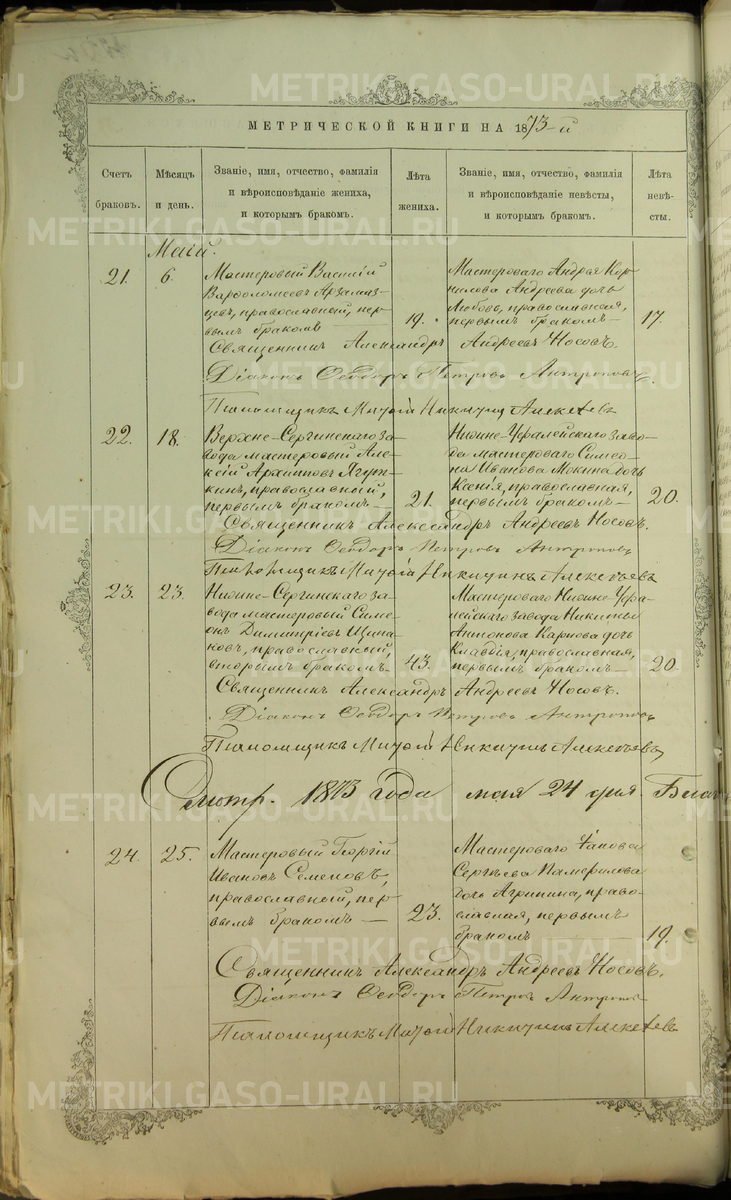 МЕТРИЧЕСКОЙ КНИГИ НА 1873-й
Счетъ браковъ.
Мѣсяцъ и день.
Званіе, имя, отчество, фамилія
и вѣроисповѣданіе жениха,
и которымъ бракомъ.
Лѣта жениха.
Званіе, имя, отчество, фамилія
и вѣроисповѣданіе невѣсты,
и которымъ бракомъ.
Лѣта невѣ-
сты.
Маій.
21. 6.
Мастеровый Василій
Варѳоломеевъ Арзамаз-
цевъ, православный, пер-
вымъ бракомъ
19.
Мастероваго Андрея Кор-
нилова Андреева дочь
Любовь, православная,
первымъ бракомъ —
17.
Священникъ Александръ Андреевъ Носовъ.
Діаконъ Ѳеодоръ Петровъ Антроповъ.
Никитинъ Алексѣевъ
22. 18.
Верхне-Сергинскаго за-
вода мастеровый Але-
ксій Архиповъ
православный,
первымъ бракомъ —
21.
Нижне-Уфалейскаго заво-
да мастероваго Симео-
на Иванова Мокина дочь
Ксенія, православная,
первымъ бракомъ —
20.
Священникъ Александръ Андреевъ Носовъ.
Діаконъ Ѳеодоръ Петровъ Антроповъ
Никитинъ Алексѣевъ
23. 23.
Нижне-Сергинскаго за-
вода мастеровый Симе-
онъ Димитріевъ Щипа-
новъ, православный,
вторымъ бракомъ —
43.
Мастероваго Нижне-Уфа-
лейскаго завода Никиты
Антонова Карпова дочь
Клавдія, православная,
первымъ бракомъ —
20.
Священникъ Александръ Андреевъ Носовъ.
Діаконъ Ѳеодоръ Петровъ Антроповъ
Никитинъ Алексѣевъ
Смотр. 1873 года мая 24 дня
24. 25.
Мастеровый Георгій
Ивановъ Семеновъ,
православный, пер-
вымъ бракомъ —
23.
Мастероваго Іакова
Сергѣева
дочь Агрипина, право-
славная, первымъ
бракомъ
19.
Священникъ Александръ Андреевъ Носовъ.
Діаконъ Ѳеодоръ Петровъ Антропов
Никитинъ Алексѣевъ
METRIKI.GASO-URAL.RU